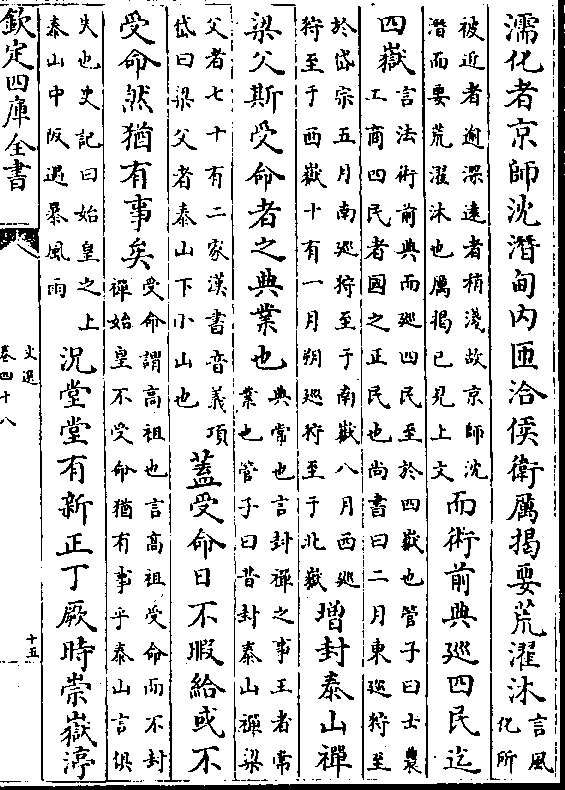 濡化者京師沈潛甸内匝洽侯衛厲揭要荒濯沐
言風
化所
被近者逾深遠者稍淺故京師沈
潛而要荒濯沐也厲揭已見上文
而術前典廵四民迄
四嶽
言法術前典而廵四民至於四嶽也管子曰士農
工商四民者國之正民也尚書曰二月東廵狩至
於岱宗五月南廵狩至于南嶽八月西廵
狩至于西嶽十有一月朔廵狩至于北嶽
增封泰山禪
梁父斯受命者之典業也
典常也言封禪之事王者常
業也管子曰昔封泰山禪梁
父者七十有二家漢書音義項
岱曰梁父者泰山下小山也
蓋受命日不暇給或不
受命然猶有事矣
受命謂高祖也言高祖受命而不封
禪始皇不受命猶有事乎泰山言俱
失也史記曰始皇之上
泰山中阪遇暴風雨
況堂堂有新正丁厥時崇嶽渟
欽定四庫全書
文選
卷四十八
十五